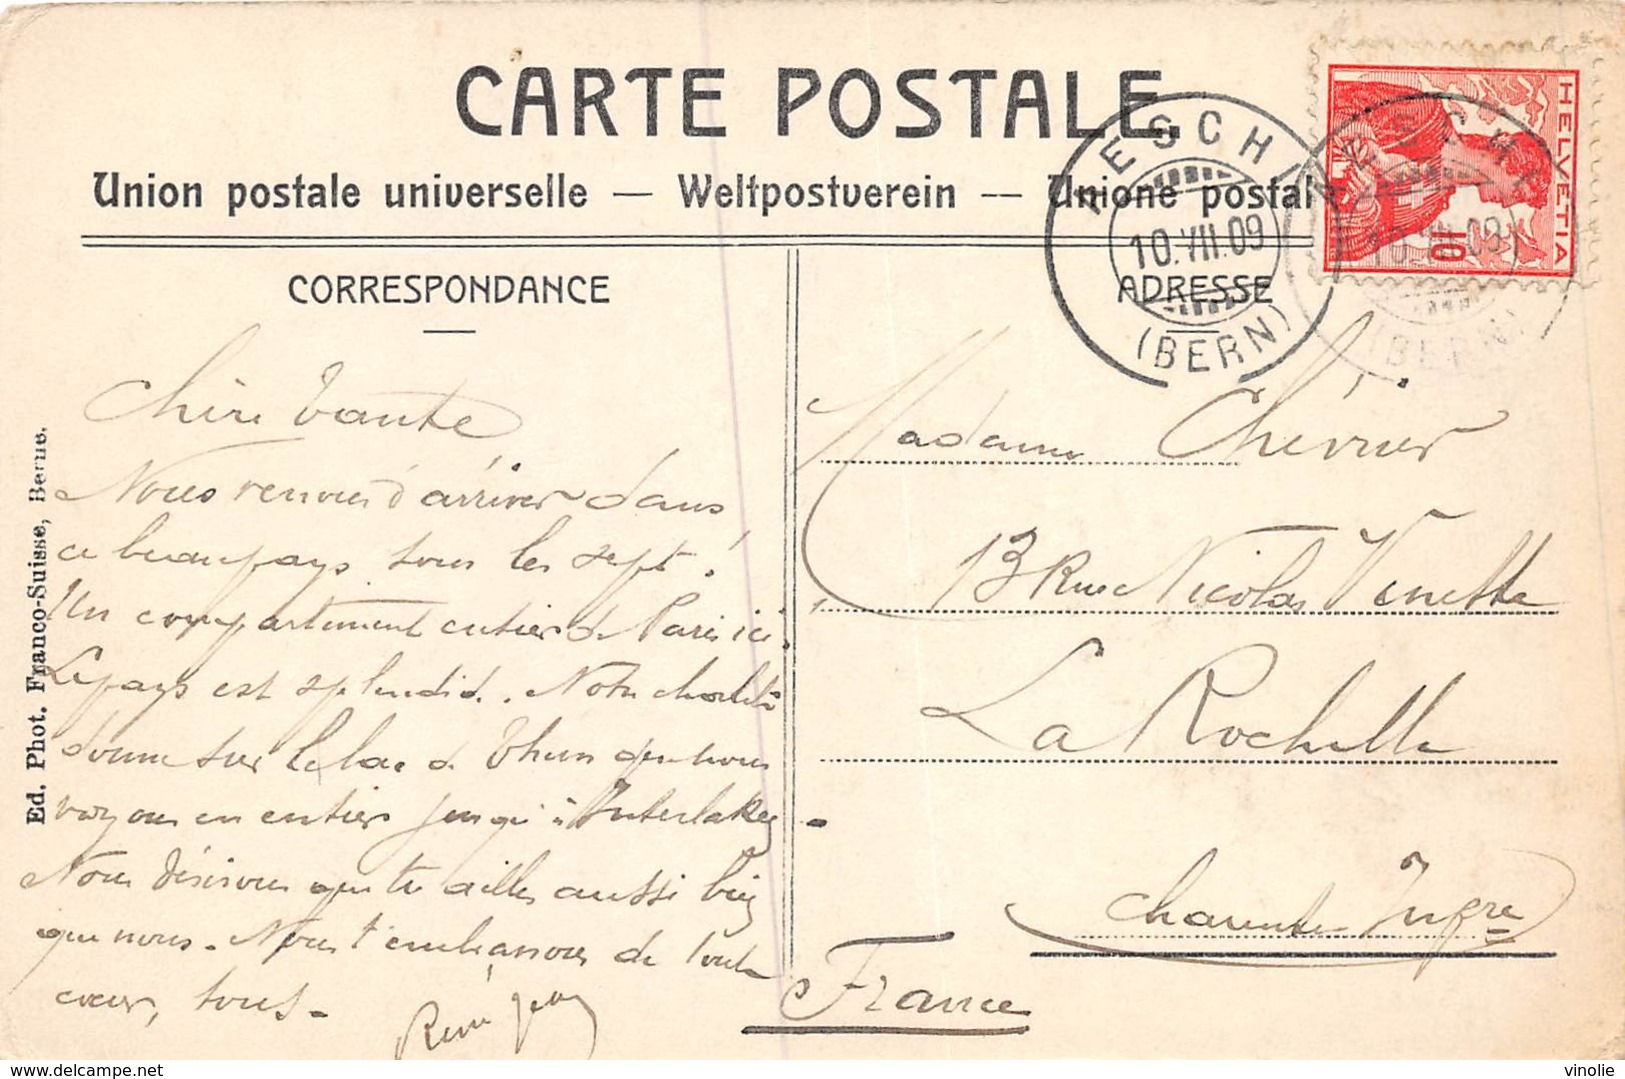 CARTE POSTALE
Union postale universelle — Weltpostverein -- Unione postal
CORRESPONDANCE
ADRESSE
AESCHI
10.VII.09
(BERN)
AESCHI
10.VII.09
(BERN)
HELVETIA
10
Ed. Phot. Franco-Suisse, Berne.
Chère Tante
Nous venons d'arriver dans
ce beau pays tous les sept!
Un compartiment entier de Paris ici.
Le pays est splendide. Notre chalet
donne sur le lac de Thun que nous
voyons en entier jusqu'à Interlaken -
Nous désirons que tu ailles aussi bien
que nous. Nous t'embrassons de tout
cœur, tous -
René
Madame Chévrier
13 Rue Nicolas Venette
La Rochelle
Charente Infre
France
vinolie
delcampe.net